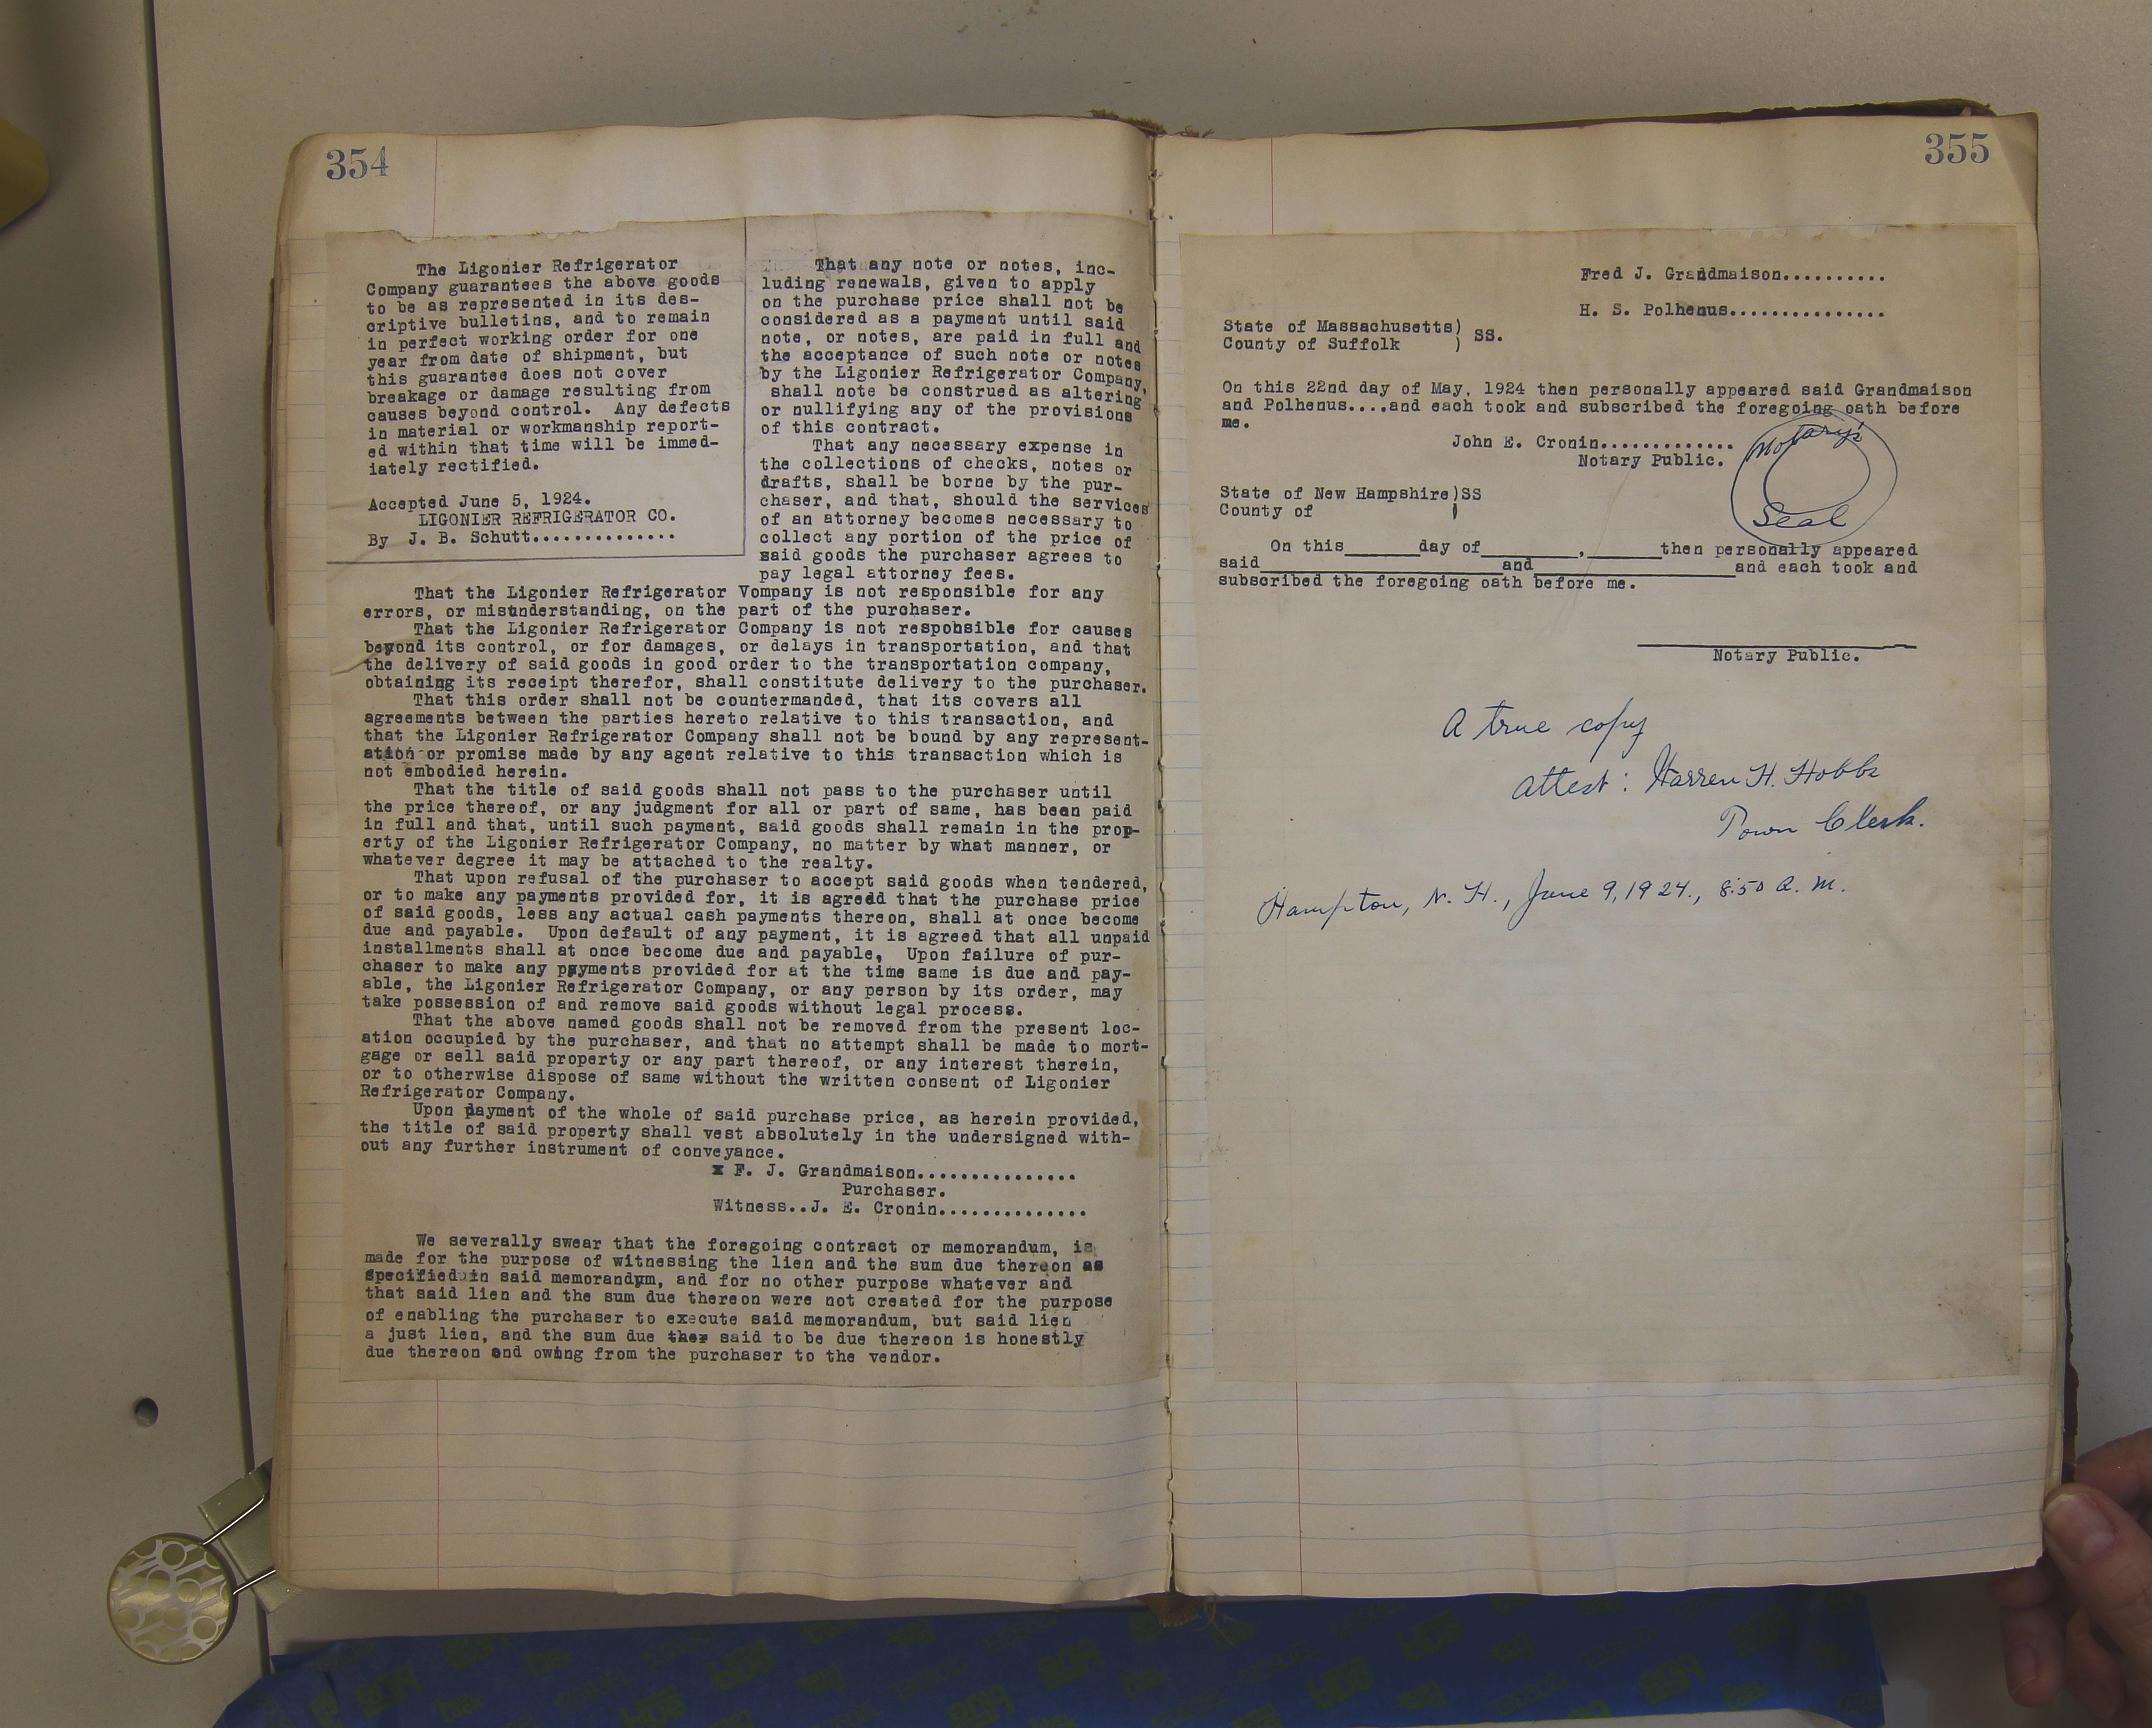 354
The Ligonier Refrigerator
Company guarantees the above goods
to be as represented in its des-
criptive bulletins, and to remain
in perfect working order for one
year from date of shipment, but
this guarantee does not cover
breakage or damage resulting from
causes beyond control. Any defects
in material or workmanship report-
ed within that time will be immed-
iately rectified.
Accepted June 5, 1924.
LIGONIER REFRIGERATOR CO.
By J. B. Schutt..............
That any note or notes, inc-
luding renewals, given to apply
on the purchase price shall not be
considered as a payment until said
note, or notes, are paid in full and
the acceptance of such note or notes
by the Ligonier Refrigerator Company,
shall note be construed as altering
or nullifying any of the provisions
of this contract.
That any necessary expense in
the collections of checks, notes or
drafts, shall be borne by the pur-
chaser, and that, should the services
of an attorney becomes necessary to
collect any portion of the price of
said goods the purchaser agrees to
pay legal attorney fees.
That the Ligonier Refrigerator Vompany is not responsible for any
errors, or misunderstanding, on the part of the purchaser.
That the Ligonier Refrigerator Company is not responsible for causes
beyond its control, or for damages, or delays in transportation, and that
the delivery of said goods in good order to the transportation company,
obtaining its receipt therefor, shall constitute delivery to the purchaser.
That this order shall not be countermanded, that its covers all
agreements between the parties hereto relative to this transaction, and
that the Ligonier Refrigerator Company shall not be bound by any represent-
ation or promise made by any agent relative to this transaction which is
not embodied herein.
That the title of said goods shall not pass to the purchaser until
the price thereof, or any judgment for all or part of same, has been paid
in full and that, until such payment, said goods shall remain in the prop-
erty of the Ligonier Refrigerator Company, no matter by what manner, or
whatever degree it may be attached to the realty.
That upon refusal of the purchaser to accept said goods when tendered,
or to make any payments provided for, it is agreed that the purchase price
of said goods, less any actual cash payments thereon, shall at once become
due and payable. Upon default of any payment, it is agreed that all unpaid
installments shall at once become due and payable, Upon failure of pur-
chaser to make any payments provided for at the time same is due and pay-
able, the Ligonier Refrigerator Company, or any person by its order, may
take possession of and remove said goods without legal process.
That the above named goods shall not be removed from the present loc-
ation occupied by the purchaser, and that no attempt shall be made to mort-
gage or sell said property or any part thereof, or any interest therein,
or to otherwise dispose of same without the written consent of Ligonier
Refrigerator Company.
Upon payment of the whole of said purchase price, as herein provided,
the title of said property shall vest absolutely in the undersigned with-
out any further instrument of conveyance.
x F. J. Grandmaison...............
Purchaser.
Witness..J. E. Cronin..............
We severally swear that the foregoing contract or memorandum, is
made for the purpose of witnessing the lien and the sum due thereon as
specified in said memorandum, and for no other purpose whatever and
that said lien and the sum due thereon were not created for the purpose
of enabling the purchaser to execute said memorandum, but said lien
a just lien, and the sum due ther said to be due thereon is honestly
due thereon and owing from the purchaser to the vendor.
355
Fred J. Grandmaison..........
H. S. Polhenus...............
State of Massachusetts) SS.
County of Suffolk )
On this 22nd day of May, 1924 then personally appeared said Grandmaison
and Polhenus....and each took and subscribed the foregoing oath before
me.
John E. Cronin.............
Notary Public.
Notary's
Seal
State of New Hampshire)SS
County of )
On this______day of________,______then personally appeared
said____________________and________________and each took and
subscribed the foregoing oath before me.
Notary Public.
A true copy
Attest: Warren H. Hobbs
Town Clerk.
Hampton, N. H., June 9, 1924., 8:50 A. M.